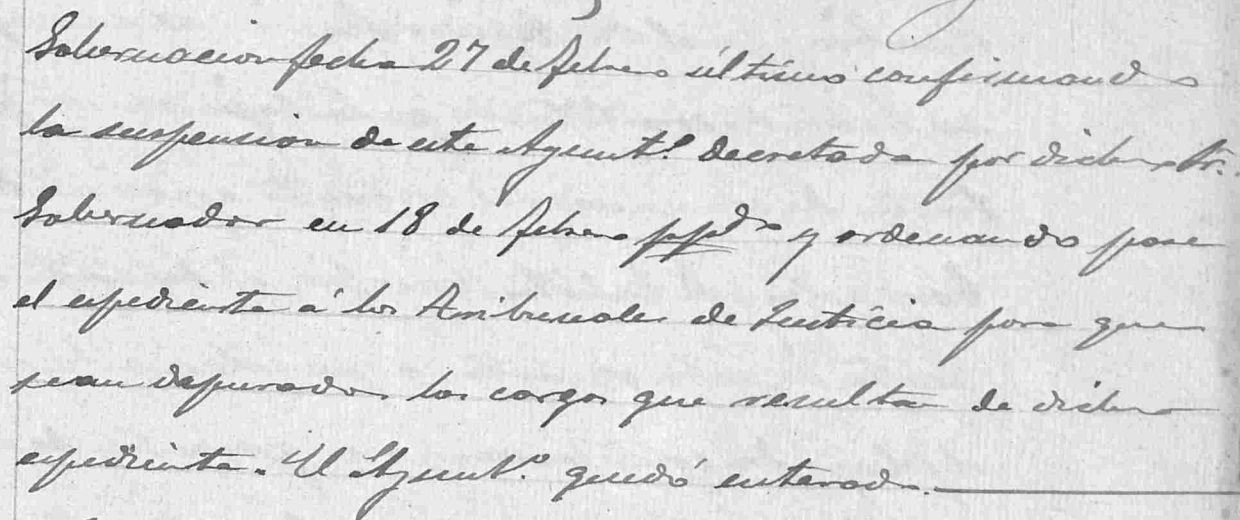 Gobernacion fecha 27 de febrero último confirmando
la suspension de este Ayunt.º decretada por dicho Sr.
Gobernador en 18 de febrero ppdo y ordenando pase
el espediente á los Tribunales de Justicia para que
sean depurados los cargos que resultan de dicho
espediente. El Ayunt.º quedó enterado.